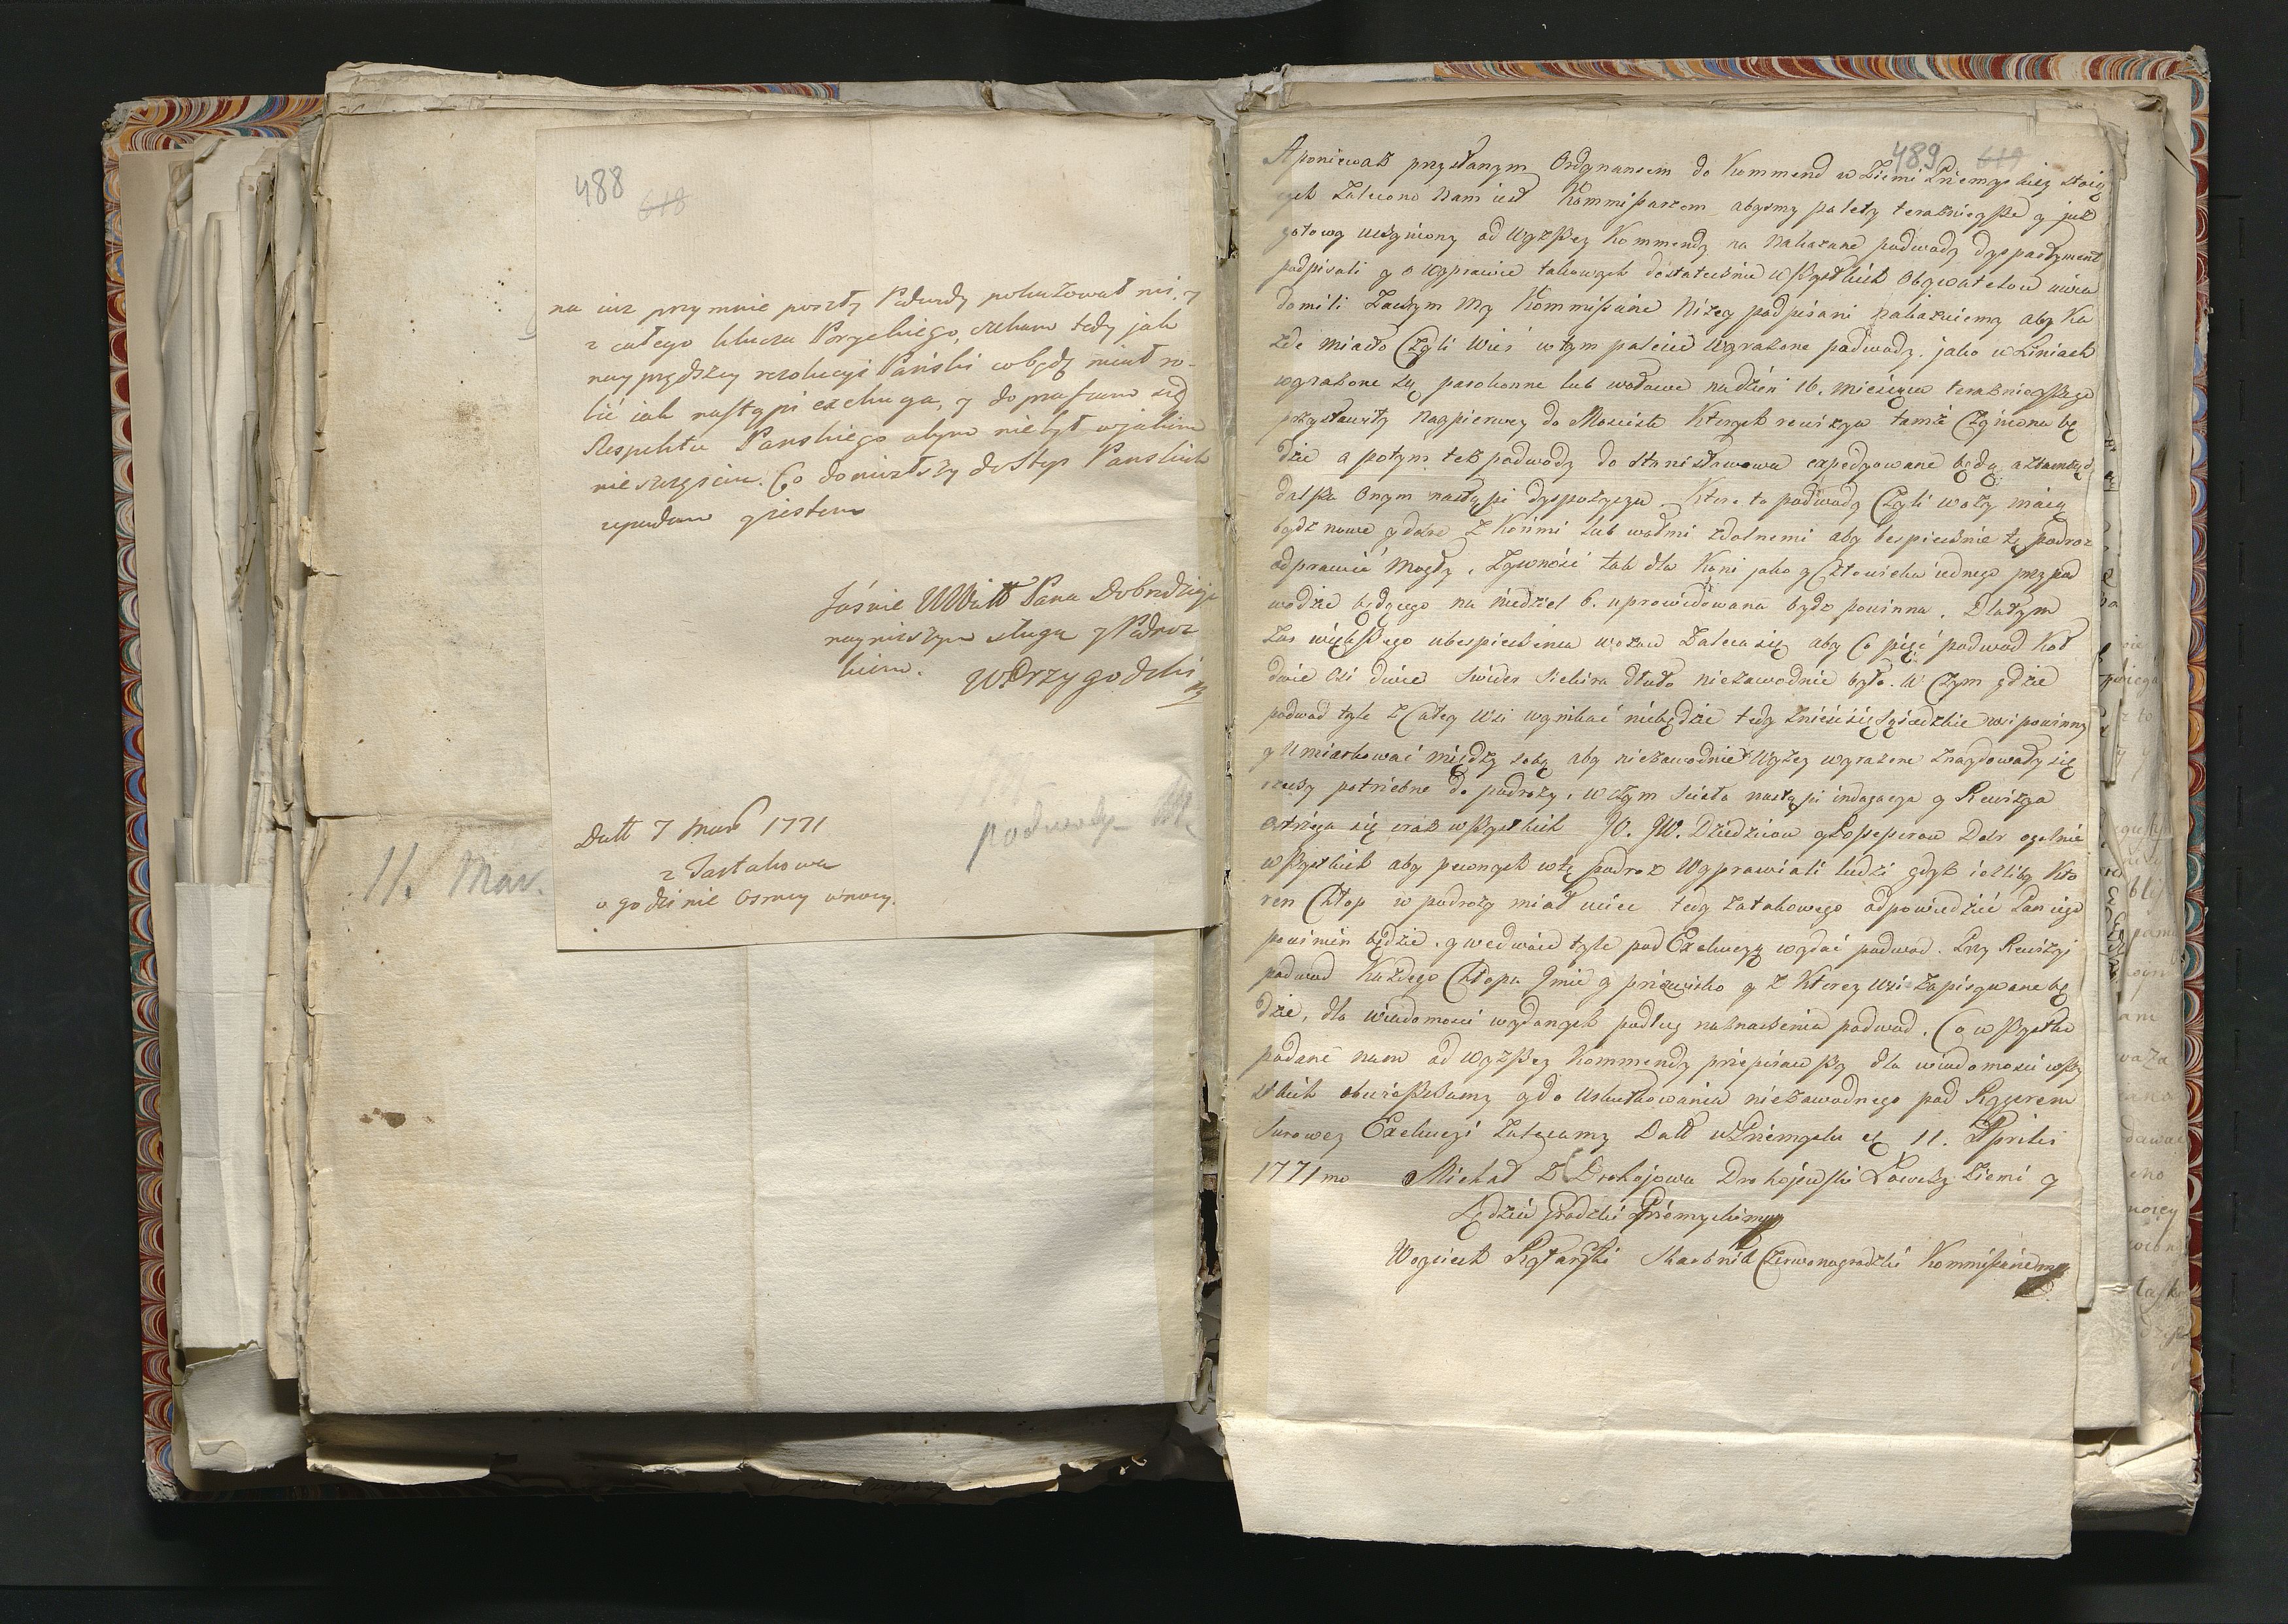 488 618
na iuż przy mnie poszły Podwody pokazował mi, y
z całego klucza Poryckiego, czekam tedy jak
nayprędszey rezolucyi Pański co będę miał ro-
bić iak nastąpi exekuga, y do praszam się
Respektu Panskiego abym niebył w jakim
nieszczęściu. Co doniózłszy do Stop Panskich
upadam y iestem
Jaśnie WWitt Pana Dobrodzieja
nayniższym sługą y Podnoz
kiem. WPrzygodzki
mp
Datt 7 Mar 1771
z Tartakowa
o godzinie osmey wnocy.
podwody
11. Mar.
489 619
A ponieważ przysłanym Ordynansem do Kommend w Ziemi Przemyskiey stoią
cych Zalecono Nam iest Kommissarzom, abysmy palety teraznieysze y już
gotowy uczyniony od Wyższey Kommendy na Nakazane podwody dyspartyment
podpisali y o wyprawie takowych dostatecznie wszystkich Obywatelow uwia
domili Zaczym My Kommissarze Niżey podpisani nakazuiemy aby Ka
żde Miasto Czyli Wieś w tym palecie Wyrażone podwody, jako w Liniach
wyrażone są, parokonne lub wołowe na dzień 16. Miesiąca teraznieyszego
przystawiły Naypierwey do Mościsk Ktorych rewizya tamże Czyniona bę
dzie a potym też podwody do Stanisławowa expedyowane będą a ztamtąd
dalsza Onym nastąpi dyspozycya. Ktore to podwody Czyli wozy maią
bydz nowe y dobre z Końmi lub wołmi zdolnemi aby bespiecznie tę podroz
odprawić Mogły, Zywność tak dla Koni jako y Człowieka iednego przy pod
wodzie będącego na niedziel 6. uprowidowana bydz powinna. Dla tym
zas większego ubespieczenia wozow Zaleca się aby Co pięć podwod Koł
dwie Osi dwie Swider Siekira dłuto niezawodnie było. W Czym gdzie
podwod tyle z Całey Wsi wynikać niebędzie tedy znieść się Sąsiedzkie wsi powinny
y Umiarkować między sobą aby niezawodnie Wyżey wyrażone znaydowały się
rzeczy potrzebne do podroży, w czym scisła nastąpi indagacya y Rewizya
Ostrzega się oraz wszystkich JO. JW. Dziedzicow y Possessorow Dobr ogolnie
wszystkich aby pewnych w tę podroz Wyprawiali ludzi gdyż ieżliby Kto
ren Chłop w podroży miał uciec tedy zatakowego odpowiedzieć Pan iego
powinien będzie, y wedwoie tyle pod Exekucyą wydać podwod. Przy Rewizyi
podwod Każdego Chłopa Jmie y przezwisko y z Ktorey Wsi Zapisywane bę
dzie, dla wiadomosci wydanych podług naznaczenia podwod. Co wszystko
podane nam od wyższey Kommendy przepisawszy dla wiadomosci wszy
stkich obwieszczamy y do Uskutkowania niezawodnego pod Rygorem
Surowey Exekucyi Zalecamy Datt w Przemyslu d 11. Aprilis
1771mo Michał z Drohojowa Drohojewski Łowczy Ziemi y
Sędzia Grodzki Przemyski mp
Woyciech Rylarski Skarbnik Czerwonogrodzki Kommissarz mp